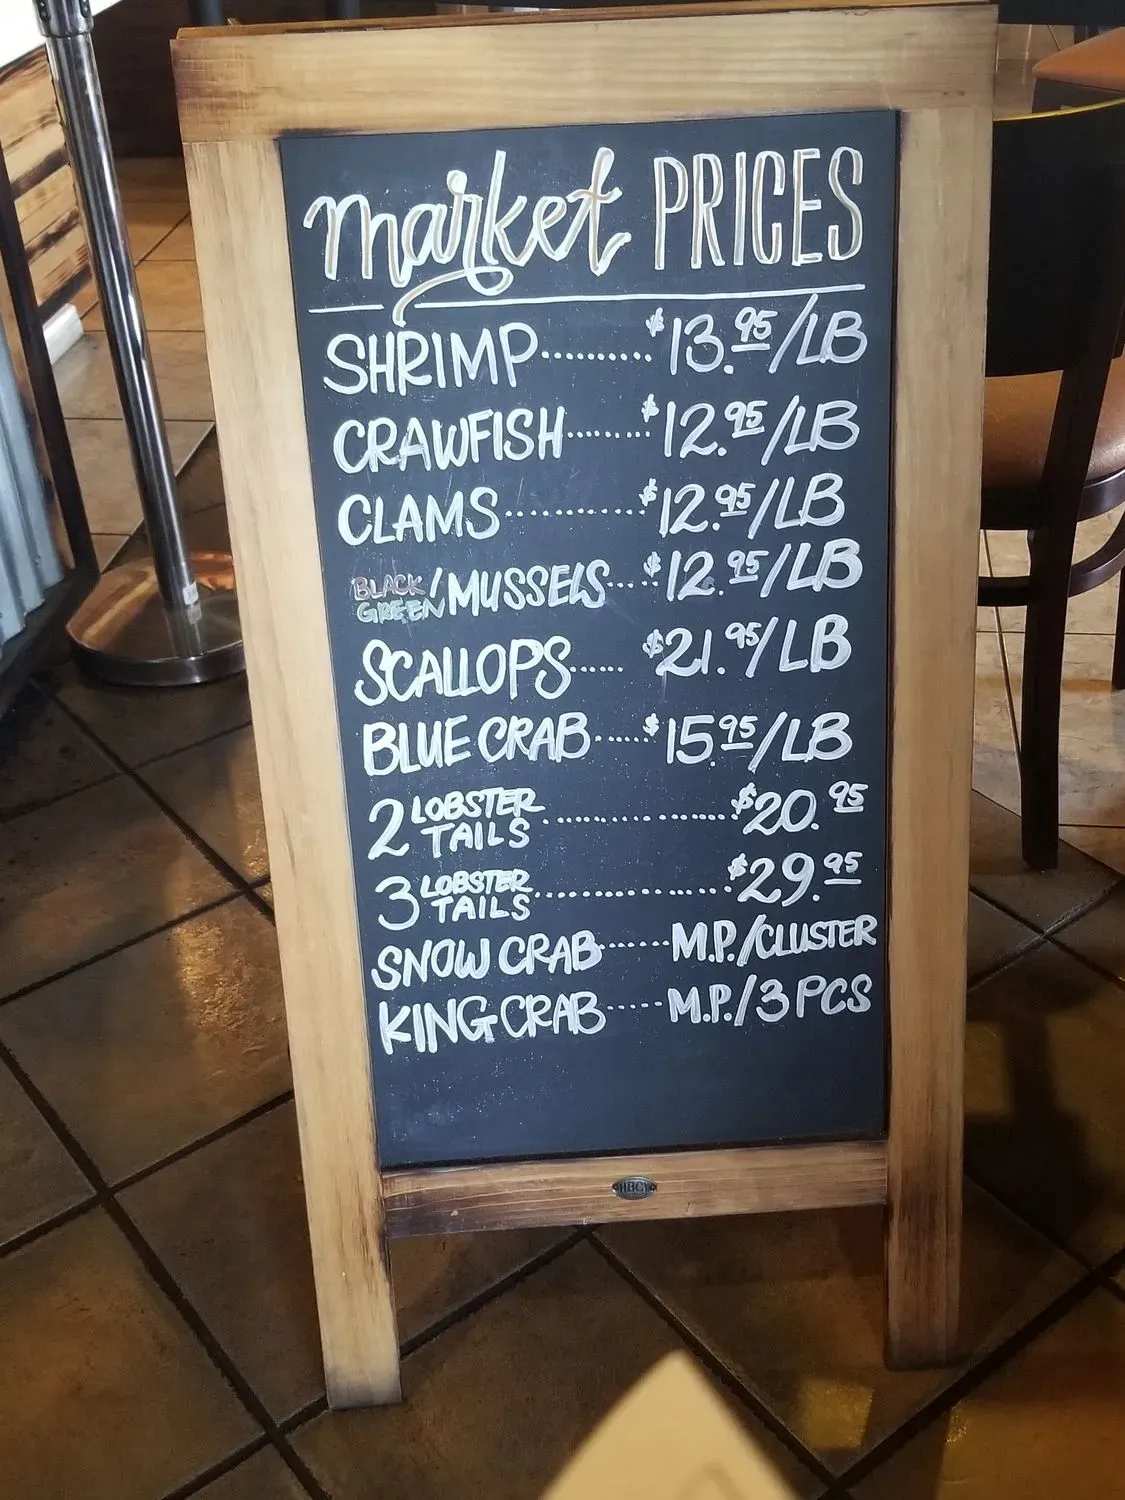 market PRICES
SHRIMP..........$13.95/LB
CRAWFISH.......$12.95/LB
CLAMS...........$12.95/LB
BLACK GREEN/MUSSELS...$12.95/LB
SCALLOPS..... $21.95/LB
BLUE CRAB.....$15.95/LB
2 LOBSTER TAILS................$20.95
3 LOBSTER TAILS................$29.95
SNOW CRAB......M.P./CLUSTER
KING CRAB.....M.P./3 PCS
HBCY